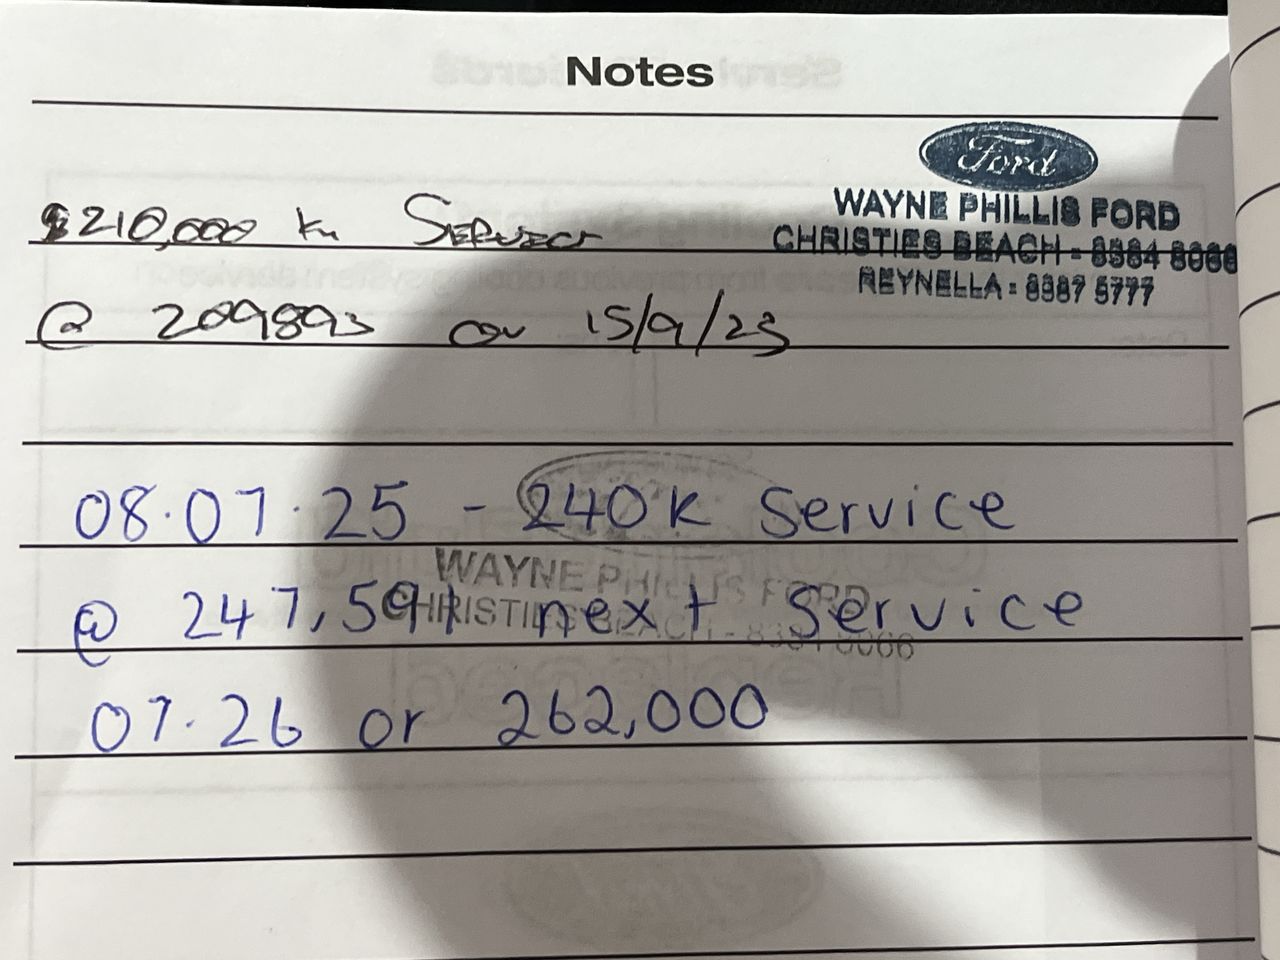 Notes
Ford
WAYNE PHILLIS FORD
CHRISTIES BEACH - 8384 8066
REYNELLA : 8387 5777
210,000 km SERVICE
@ 209893 on 15/9/23
08.07.25 - 240K Service
WAYNE PHILLIS FORD
CHRISTIES BEACH - 8384 8066
@ 247,591 next service
07.26 or 262,000